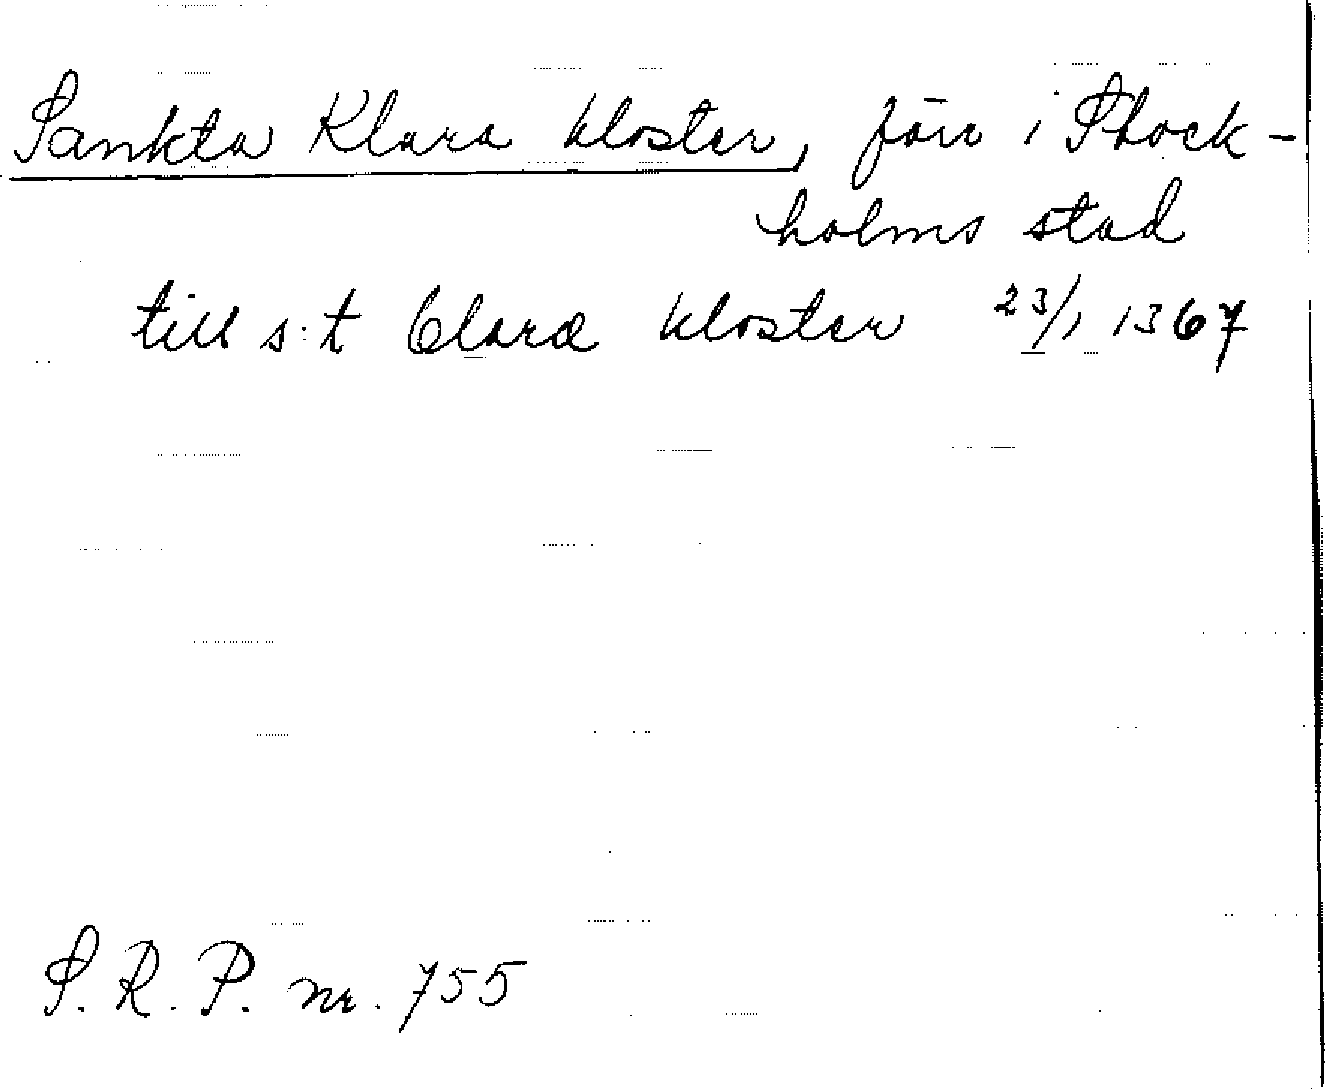 Sankta Klara kloster, förr i Stock-
holms stad
till s:t Claræ kloster 23/1 1367
S.R.P. nr. 755